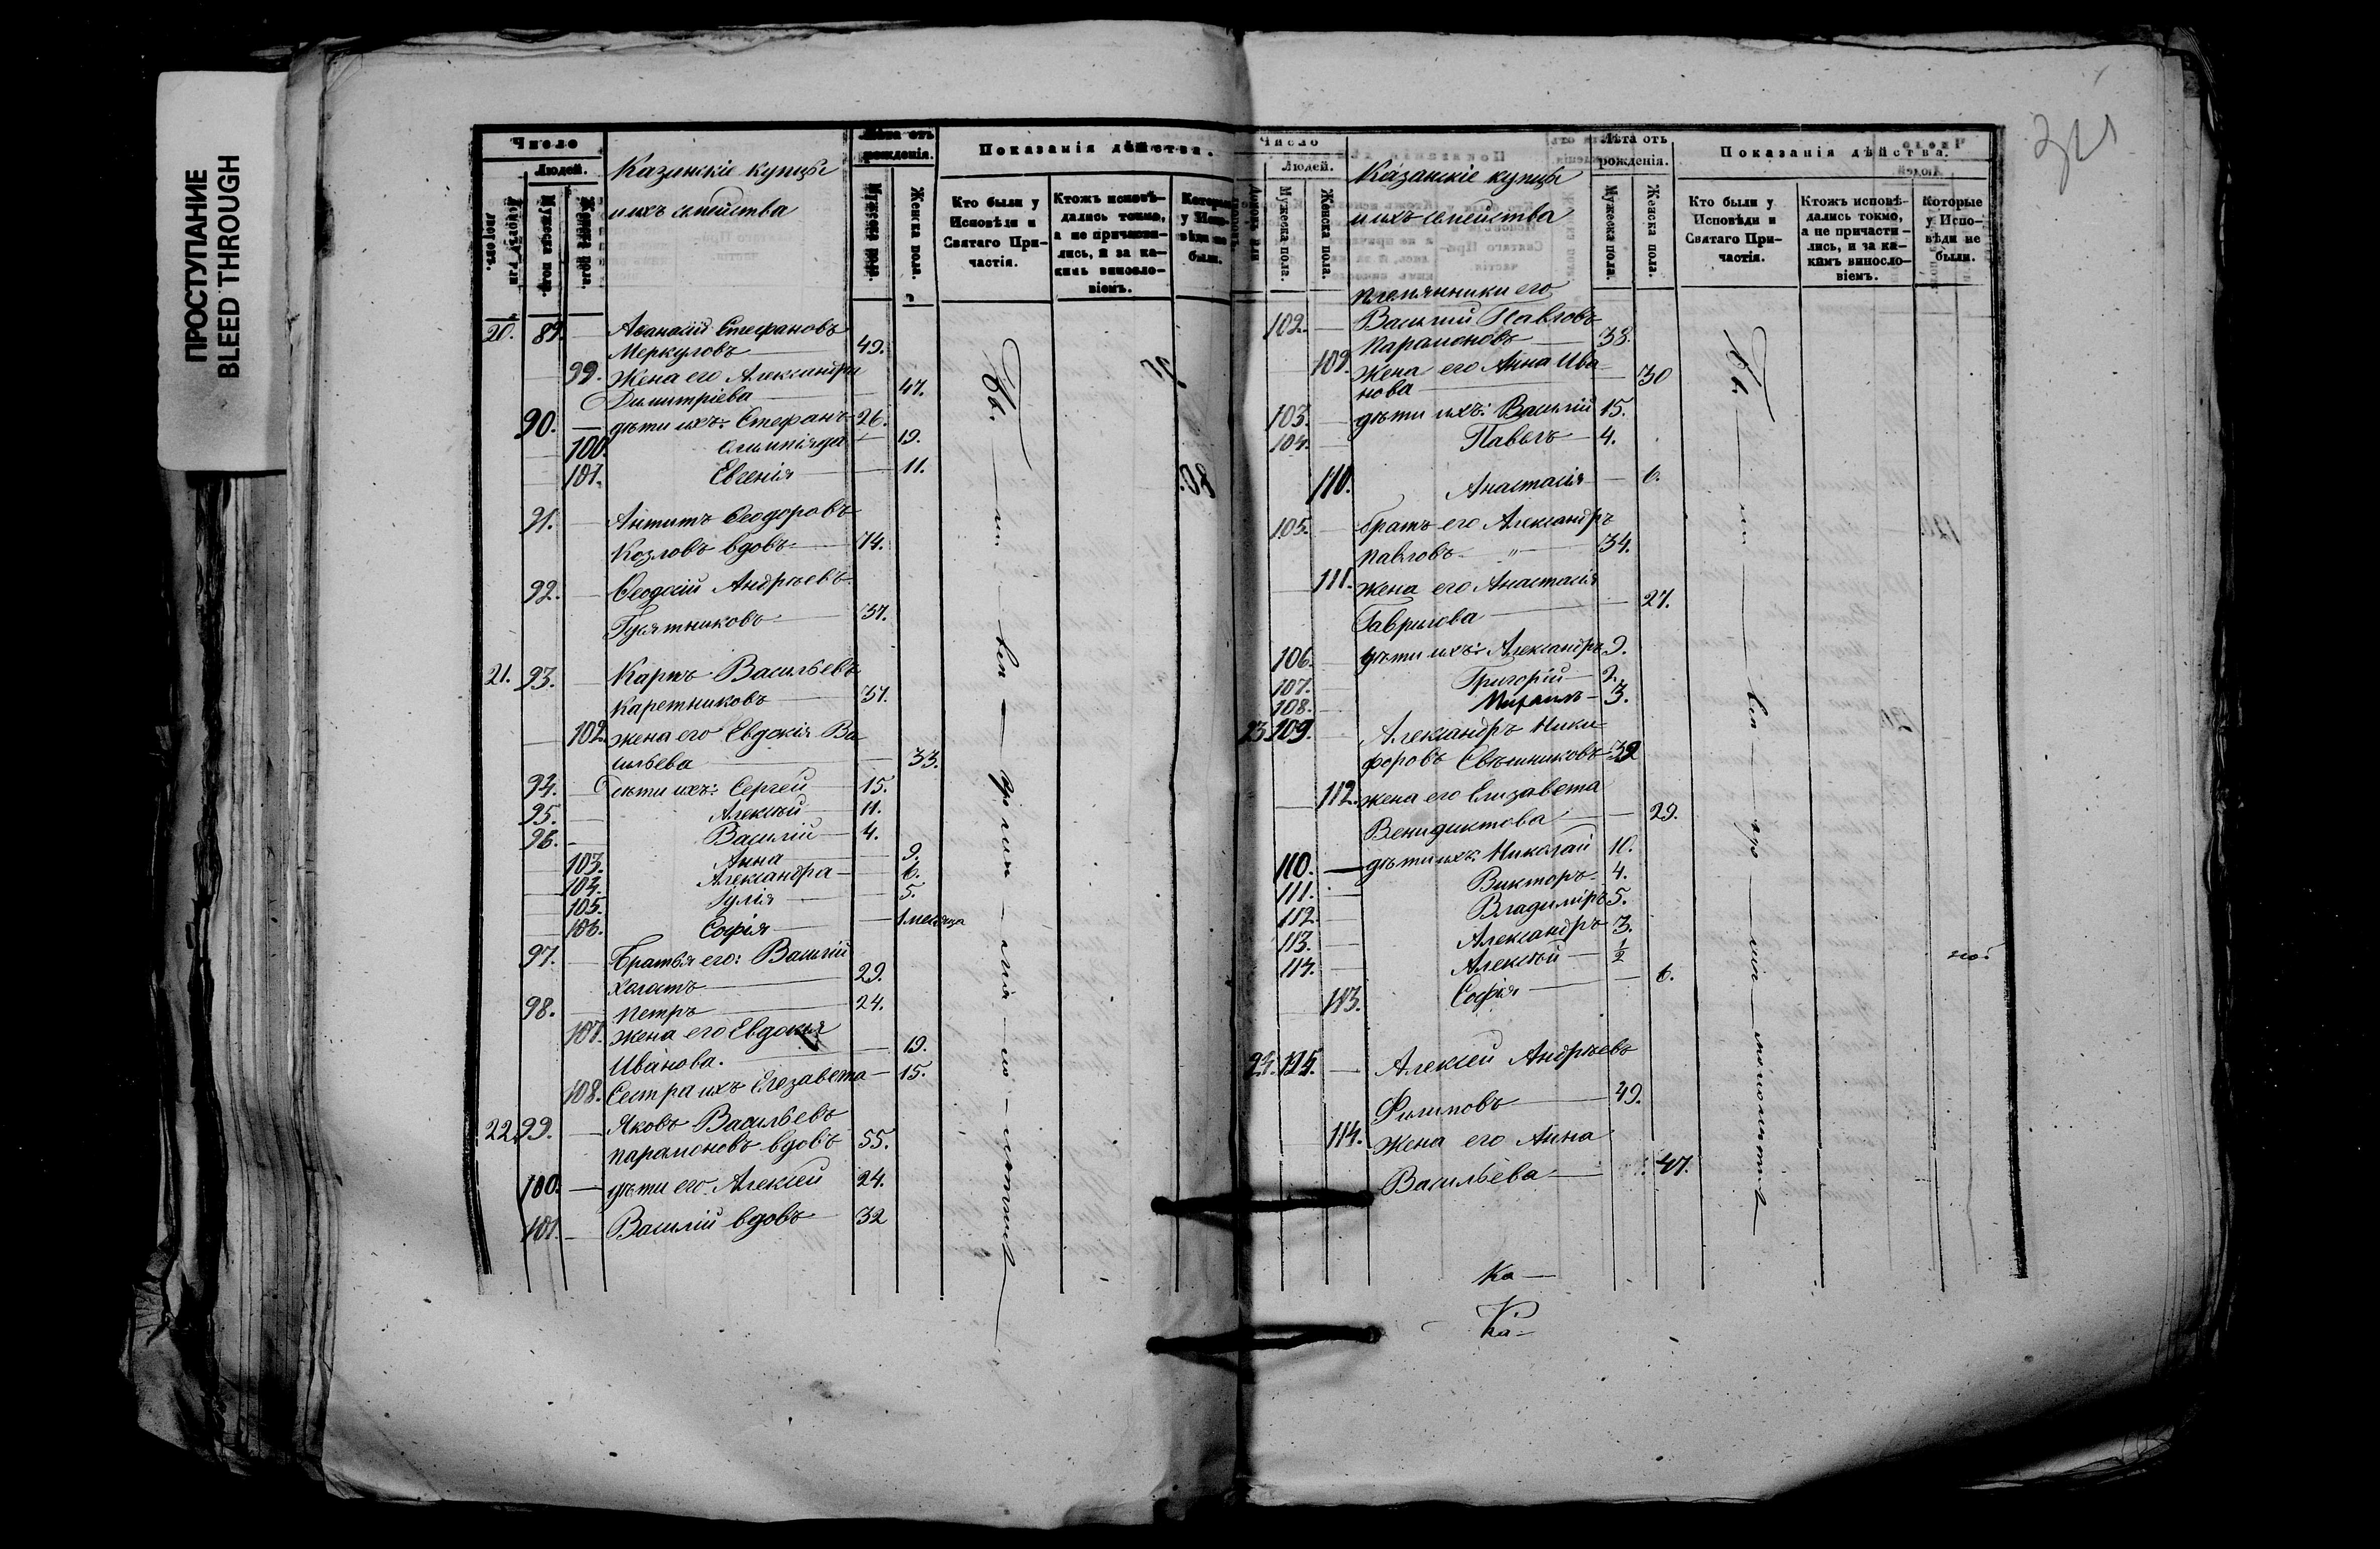 ПРОСТУПАНИЕ
BLEED THROUGH
Число
Людей.
Дворовъ или
домовъ.
Мужеска пола.
Женска пола.
Казанскіе купцы
и ихъ семейства
Лѣта отъ
рожденія.
Мужеска пола.
Женска пола.
Показанія дѣйства.
Кто были у
Исповѣди и
Святаго При-
частія.
Ктожъ исповѣ-
дались токмо,
а не причасти-
лись, и за ка-
кимъ виносло-
віемъ.
Которые
у Испо-
вѣди не
были.
20. 89. — Аѳанасій Стефановъ
Меркуловъ — 49.
99. Жена его Александра
Димитріева — 47.
90. — дѣти ихъ: Стефанъ — 26.
100. Олимпіяда — 19.
101. Евгенія — 11.
91. — Антипъ Ѳеодоровъ
Козловъ вдовъ — 74.
92. — Ѳеодосій Андреевъ
Гусятниковъ — 37.
21. 93. — Карпъ Васильевъ
Каретниковъ — 37.
102. жена его Евдокія Ва
сильева — 33.
94. — Дѣти ихъ: Сергей — 15.
95. — Алексѣй — 11.
96. — Василій — 4.
103. Анна — 9.
104. Александра — 6.
105. Іулія — 5.
106. Софія — 1 месяца
97. — Братья его: Василій
холостъ — 29.
98. Петръ — 24.
107. жена его Евдокія
Иванова. — 19.
108. Сестра ихъ Елезавета — 15.
22. 99. — Яковъ Васильевъ
Парамоновъ вдовъ 55.
100. — дѣти его. Алексей 24.
101. — Василій вдовъ 32
Число
Людей.
Мужеска пола.
Женска пола.
Казанскіе купцы
и ихъ семейства
Лѣта отъ
рожденія.
Мужеска пола.
Женска пола.
Показанія дѣйства.
Кто были у
Исповѣди и
Святаго При-
частія.
Ктожъ исповѣ-
дались токмо,
а не причасти-
лись, и за ка-
кимъ виносло-
віемъ.
Которые
у Испо-
вѣди не
были.
племянники его
102. — Василій Павловъ
Парамоновъ — 38.
109. Жена его Анна Ива
нова — 30
103. — дѣти ихъ: Василій 15.
104. — Павелъ — 4.
110. Анастасія — 6.
105. — братъ его Александръ
Павловъ — " — 34.
111. жена его Анастасія
Гаврилова — 27.
106. — дѣти ихъ: Александръ 9.
107. Григорій — 2.
108. Михаилъ — 3.
23. 109. — Александръ Ники
форовъ Свѣшниковъ — 32
112. жена его Елизавета
Венидиктова — 29.
110. — дѣти ихъ: Николай 10.
111. — Викторъ 4.
112. — Владиміръ 5.
113. — Александръ 3.
114. — Алексѣй — 1/2
113. Софія — 6.
24. 115. — Алексѣй Андреевъ
Филиповъ — 49.
114. Жена его Анна
Васильева — 47.
Ка —
Ка —